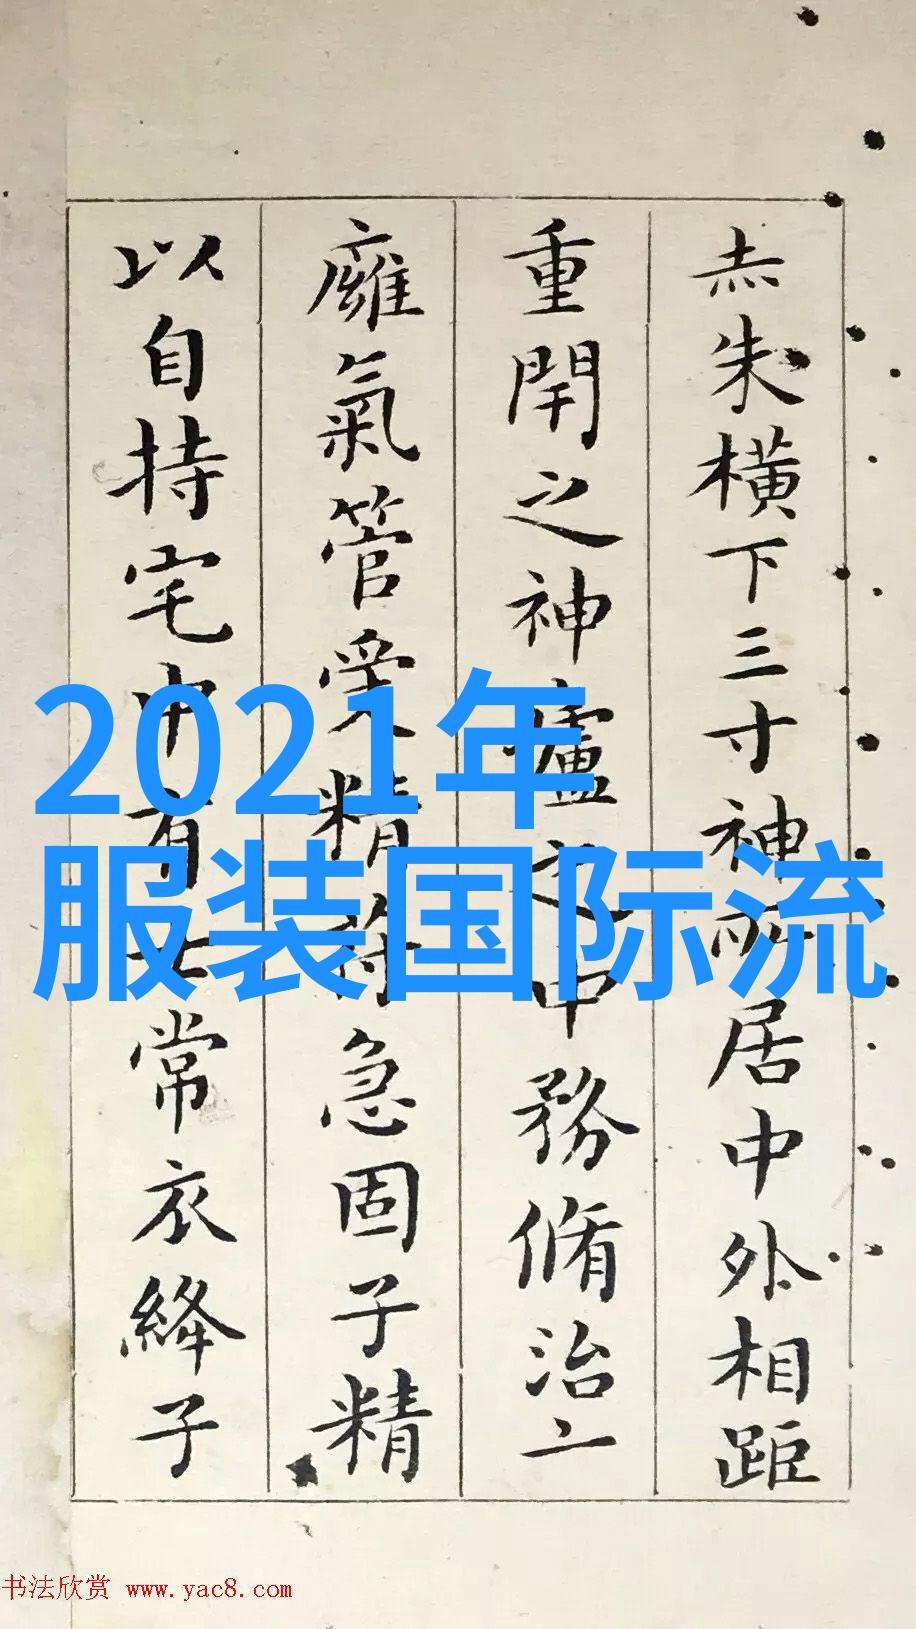 赤朱橫下三寸神所居中外相距
重閇之神廬之中務脩治亠
廱氣管受精符急固子精
以自持宅中有士常衣絳子
2021年
服装国际流
书法欣赏 www.yac8.com